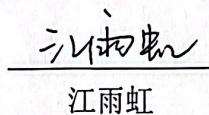 江雨虹
江雨虹